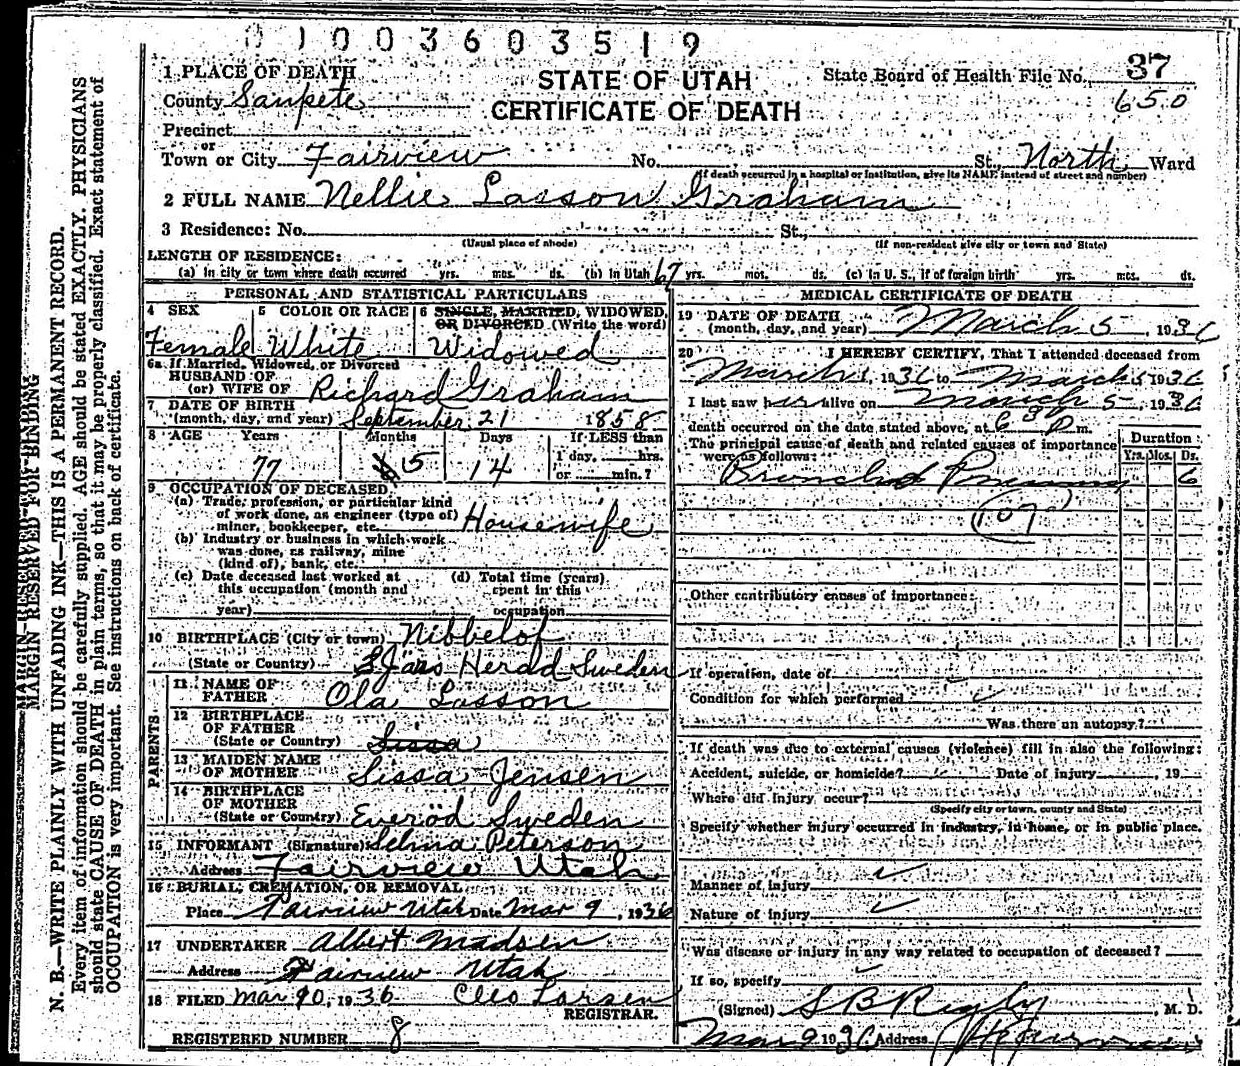 01003603519
1 PLACE OF DEATH
STATE OF UTAH
State Board of Health File No. 37
County Sanpete
CERTIFICATE OF DEATH
650
Precinct
or
Town or City Fairview No. St., North Ward
(If death occurred in a hospital or institution, give its NAME instead of street and number)
2 FULL NAME Nellie Lasson Graham
3 Residence: No. St.,
(Usual place of abode) (If non-resident give city or town and State)
LENGTH OF RESIDENCE:
(a) In city or town where death occurred yrs. mos. ds. (b) In Utah 67 yrs. mos. ds. (c) In U. S., if of foreign birth yrs. mos. ds.
PERSONAL AND STATISTICAL PARTICULARS
4 SEX 5 COLOR OR RACE 6 SINGLE, MARRIED, WIDOWED,
OR DIVORCED (Write the word)
Female White Widowed
6a If Married, Widowed, or Divorced
HUSBAND OF
(or) WIFE OF Richard Graham
7 DATE OF BIRTH
(month, day, and year) September 21 1858
8 AGE Years Months Days If LESS than
1 day, hrs.
77 5 14 or min.?
9 OCCUPATION OF DECEASED
(a) Trade, profession, or particular kind
of work done, as engineer (type of)
miner, bookkeeper, etc. Housewife
(b) Industry or business in which work
was done, as railway, mine
(kind of), bank, etc.
(c) Date deceased last worked at (d) Total time (years)
this occupation (month and spent in this
year) occupation
10 BIRTHPLACE (City or town) Nibbelof
(State or Country) Herad Sweden
PARENTS
11 NAME OF
FATHER Ola Lasson
12 BIRTHPLACE
OF FATHER
(State or Country) Sissa
13 MAIDEN NAME
OF MOTHER Sissa Jensen
14 BIRTHPLACE
OF MOTHER
(State or Country) Everöd Sweden
15 INFORMANT (Signature) Selma Peterson
Address Fairview Utah
16 BURIAL, CREMATION, OR REMOVAL
Place Fairview Utah Date Mar 9, 1936
17 UNDERTAKER Albert Madsen
Address Fairview Utah
18 FILED Mar 10, 1936 Cleo Larsen
REGISTRAR.
REGISTERED NUMBER 8
MEDICAL CERTIFICATE OF DEATH
19 DATE OF DEATH
(month, day, and year) March 5, 1936
20 I HEREBY CERTIFY, That I attended deceased from
March 1, 1936 to March 5 1936
I last saw her alive on March 5, 1936
death occurred on the date stated above, at 6 30 P m.
The principal cause of death and related causes of importance
were as follows:
Duration
Yrs. Mos. Ds.
Bronchial 6
107
Other contributory causes of importance:
If operation, date of
Condition for which performed
Was there an autopsy?
If death was due to external causes (violence) fill in also the following:
Accident, suicide, or homicide? Date of injury , 19
Where did injury occur?
(Specify city or town, county and State)
Specify whether injury occurred in industry, in home, or in public place.
Manner of injury
Nature of injury
Was disease or injury in any way related to occupation of deceased?
If so, specify
(Signed) S B Rigby, M. D.
Mar 9 1936 Address
MARGIN RESERVED FOR BINDING
N. B.—WRITE PLAINLY WITH UNFADING INK—THIS IS A PERMANENT RECORD.
Every item of information should be carefully supplied. AGE should be stated EXACTLY. PHYSICIANS
should state CAUSE OF DEATH in plain terms, so that it may be properly classified. Exact statement of
OCCUPATION is very important. See instructions on back of certificate.